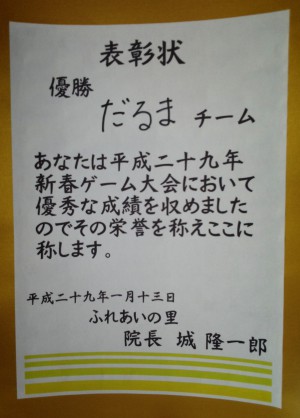 表彰状
優勝
だるま チーム
あなたは平成二十九年
新春ゲーム大会において
優秀な成績を収めました
のでその栄誉を称えここに
称します。
平成二十九年一月十三日
ふれあいの里
院長 城 隆一郎